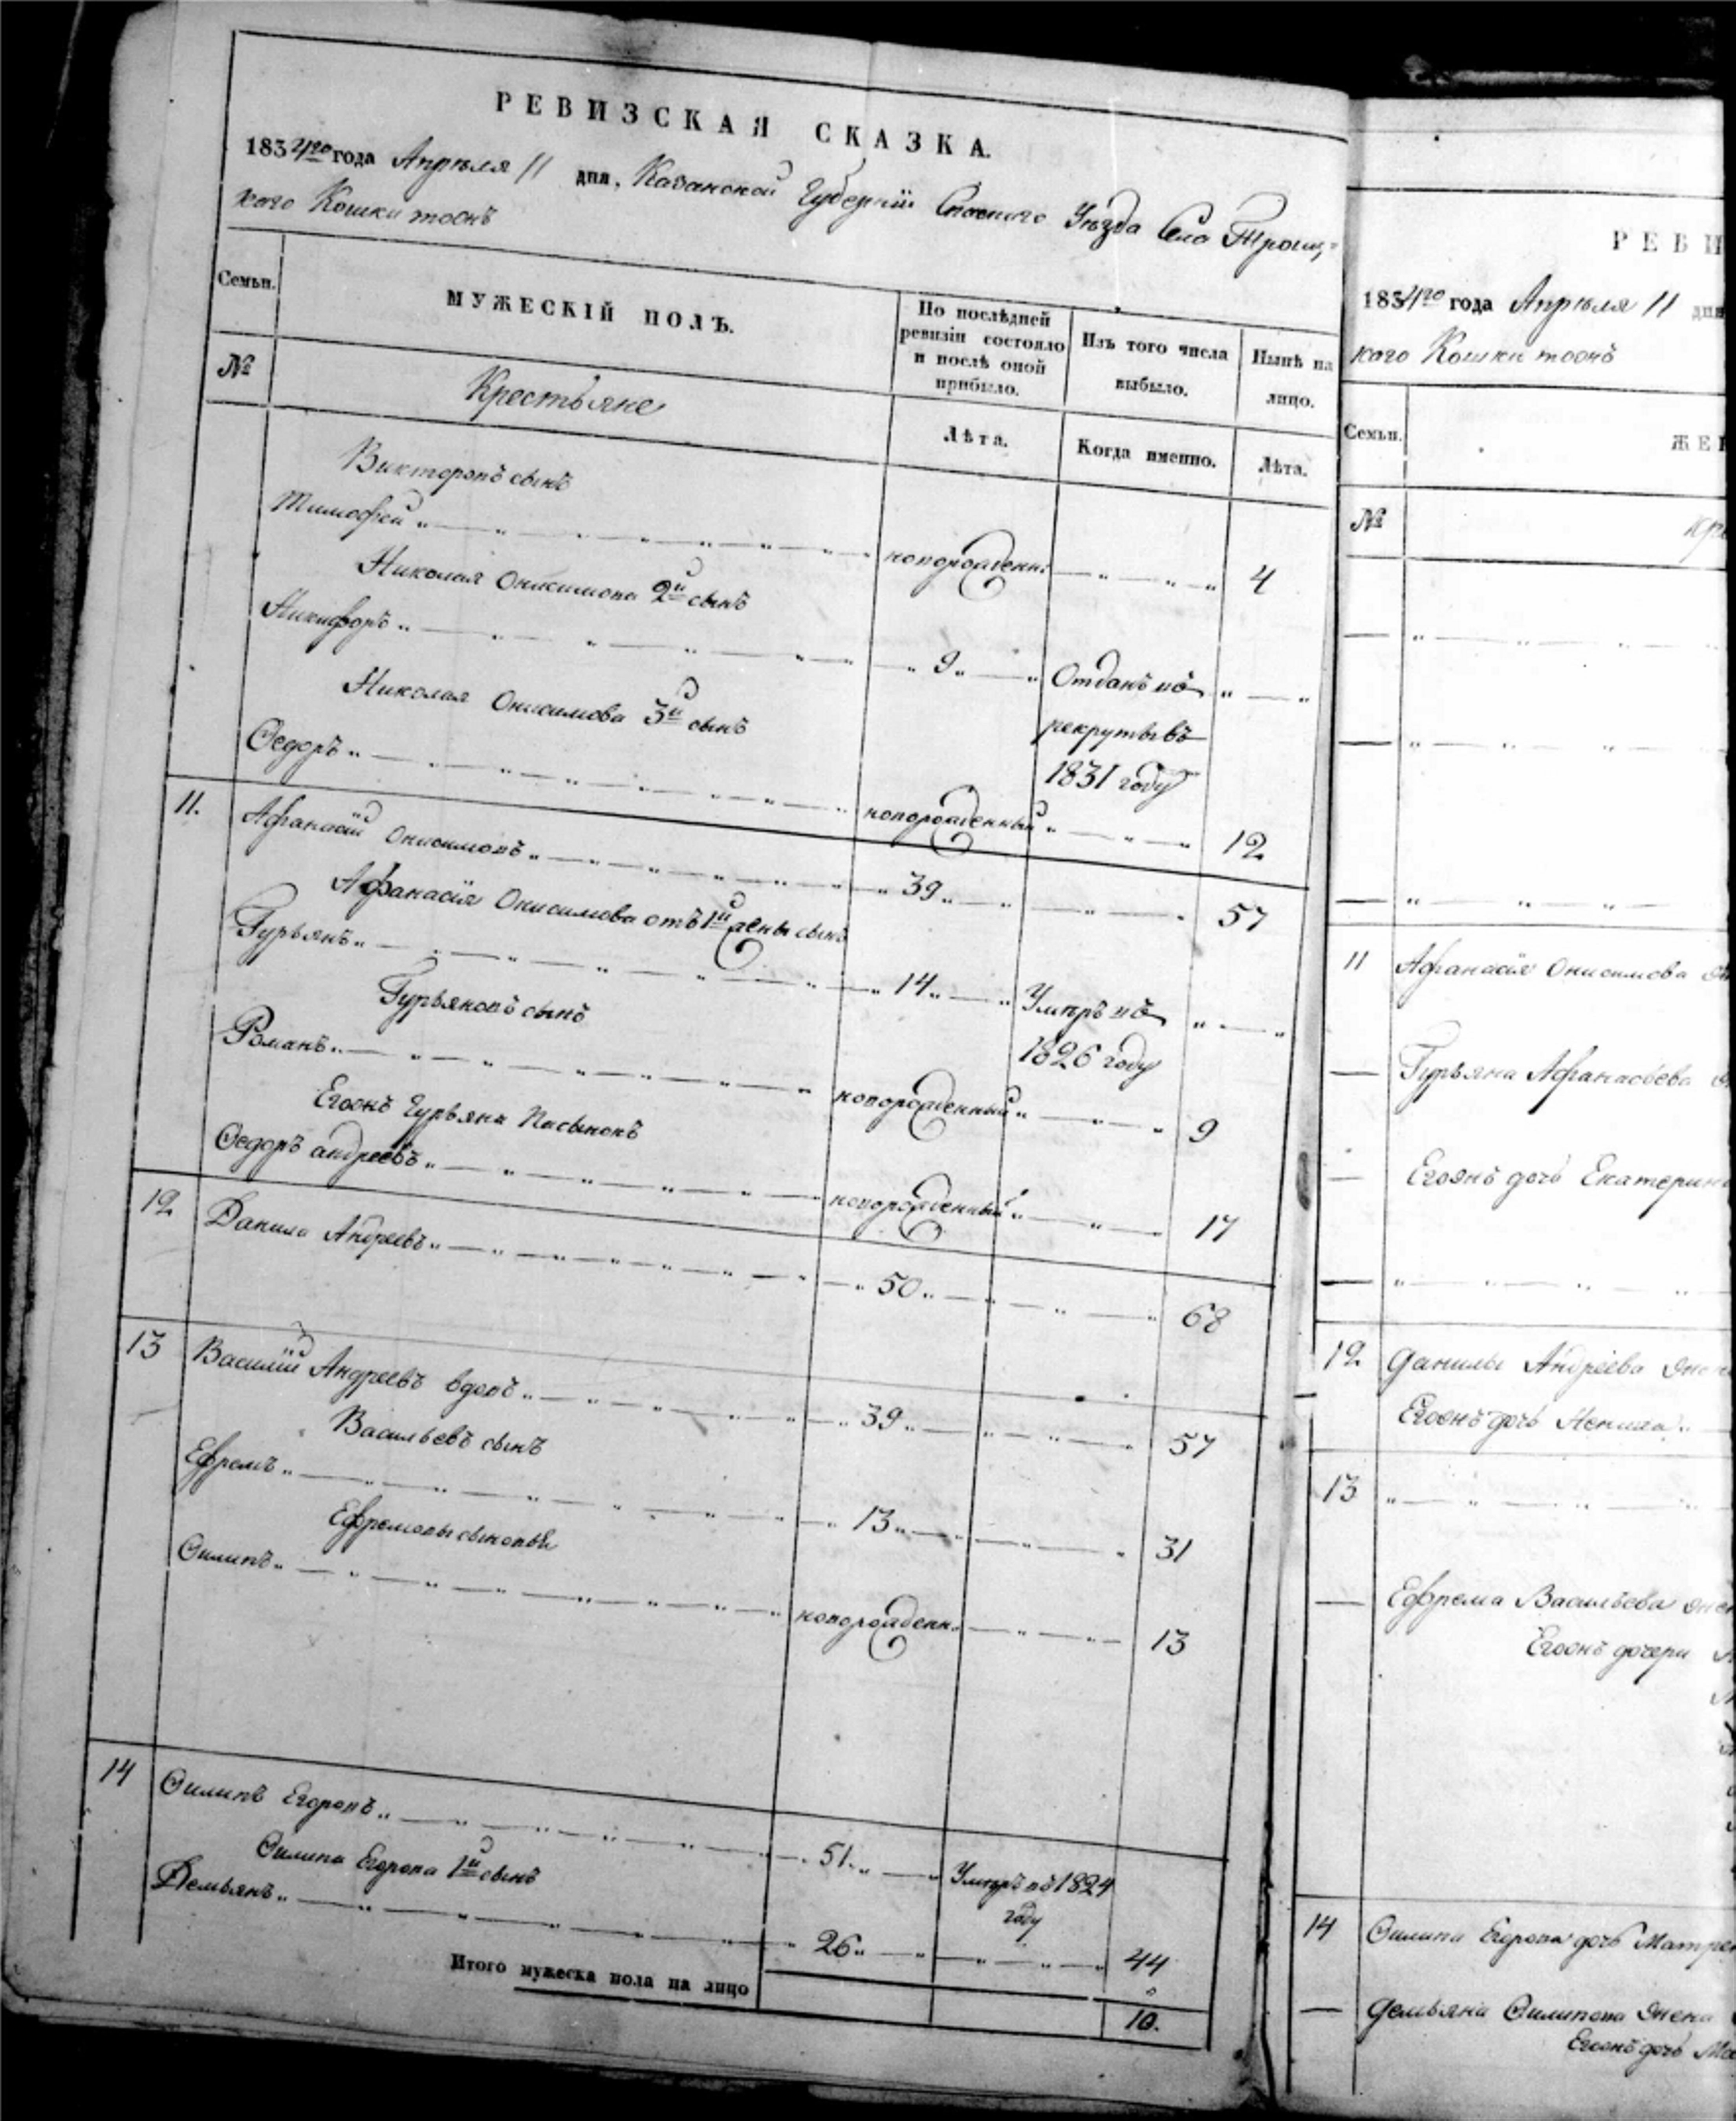 РЕВИЗСКАЯ СКАЗКА.
1834го года Апреля 11 дня, Казанской Губернии Спаского Уезда Село Троиц=
каго Кошки тоонъ
Семьи.
МУЖЕСКІЙ ПОЛЪ.
По послѣдней ревизіи состояло и послѣ оной прибыло.
Изъ того числа выбыло.
Нынѣ на лицо.
№
Крестьяне
Лѣта.
Когда именно.
Лѣта.
Викторовъ сынъ
Тимофей новорожден: 4
Николая Онисимова 2й сынъ
Никифоръ 9 Отданъ въ
рекруты въ
1831 году
Николая Онисимова 3й сынъ
Ѳедоръ новорожденный 12
11. Афанасій Онисимовъ 39 57
Афанасія Онисимова отъ 1й жены сынъ
Гурьянъ 14 Умеръ въ
1826 году
Гурьяновъ сынъ
Романъ новорожденный 9
Егоонъ Гурьяна Пасынокъ
Ѳедоръ андреевъ новорожденный 17
12 Данила Андреевъ 50 68
13 Василій Андреевъ вдовъ 39 57
Васильевъ сынъ
Ефремъ 13 31
Ефремовы сыновья
Ѳилипъ новорожден. 13
14 Ѳилипъ Егоровъ 51 Умеръ въ 1824
году
Ѳилипа Егорова 1й сынъ
Демьянъ 26 44
Итого мужеска пола на лицо 10.
РЕВИ
1834го года Апреля 11 дня
каго Кошки тоонъ
Семьи.
ЖЕ
№
Кре
11 Афанасія Онисимова
Гурьяна Афанасьева
Егоонъ дочь Екатерин
12 Данилы Андреева жен
Егоонъ дочь
13
Ефрема Васильева жен
Егоонъ дочери
14 Ѳилипа Егорова дочь Матре
Демьяна Ѳилипова жена
Егоонъ дочь Ма